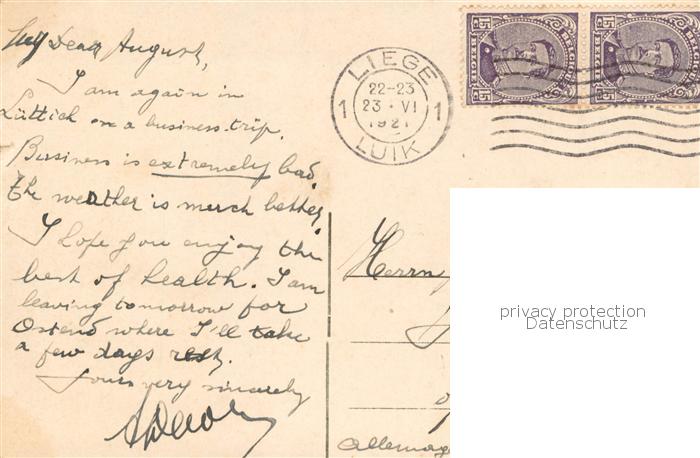 My Dear August,
I am again in
Lüttich on a business trip.
Business is extremely bad,
the weather is much better.
I hope you enjoy the
best of health. I am
leaving tomorrow for
Ostend where I'll take
a few days rest.
Yours very sincerely
LIEGE
22-23
1 23 · VI 1
1921
LUIK
15 15
15 15
Herrn
Allemag
privacy protection
Datenschutz